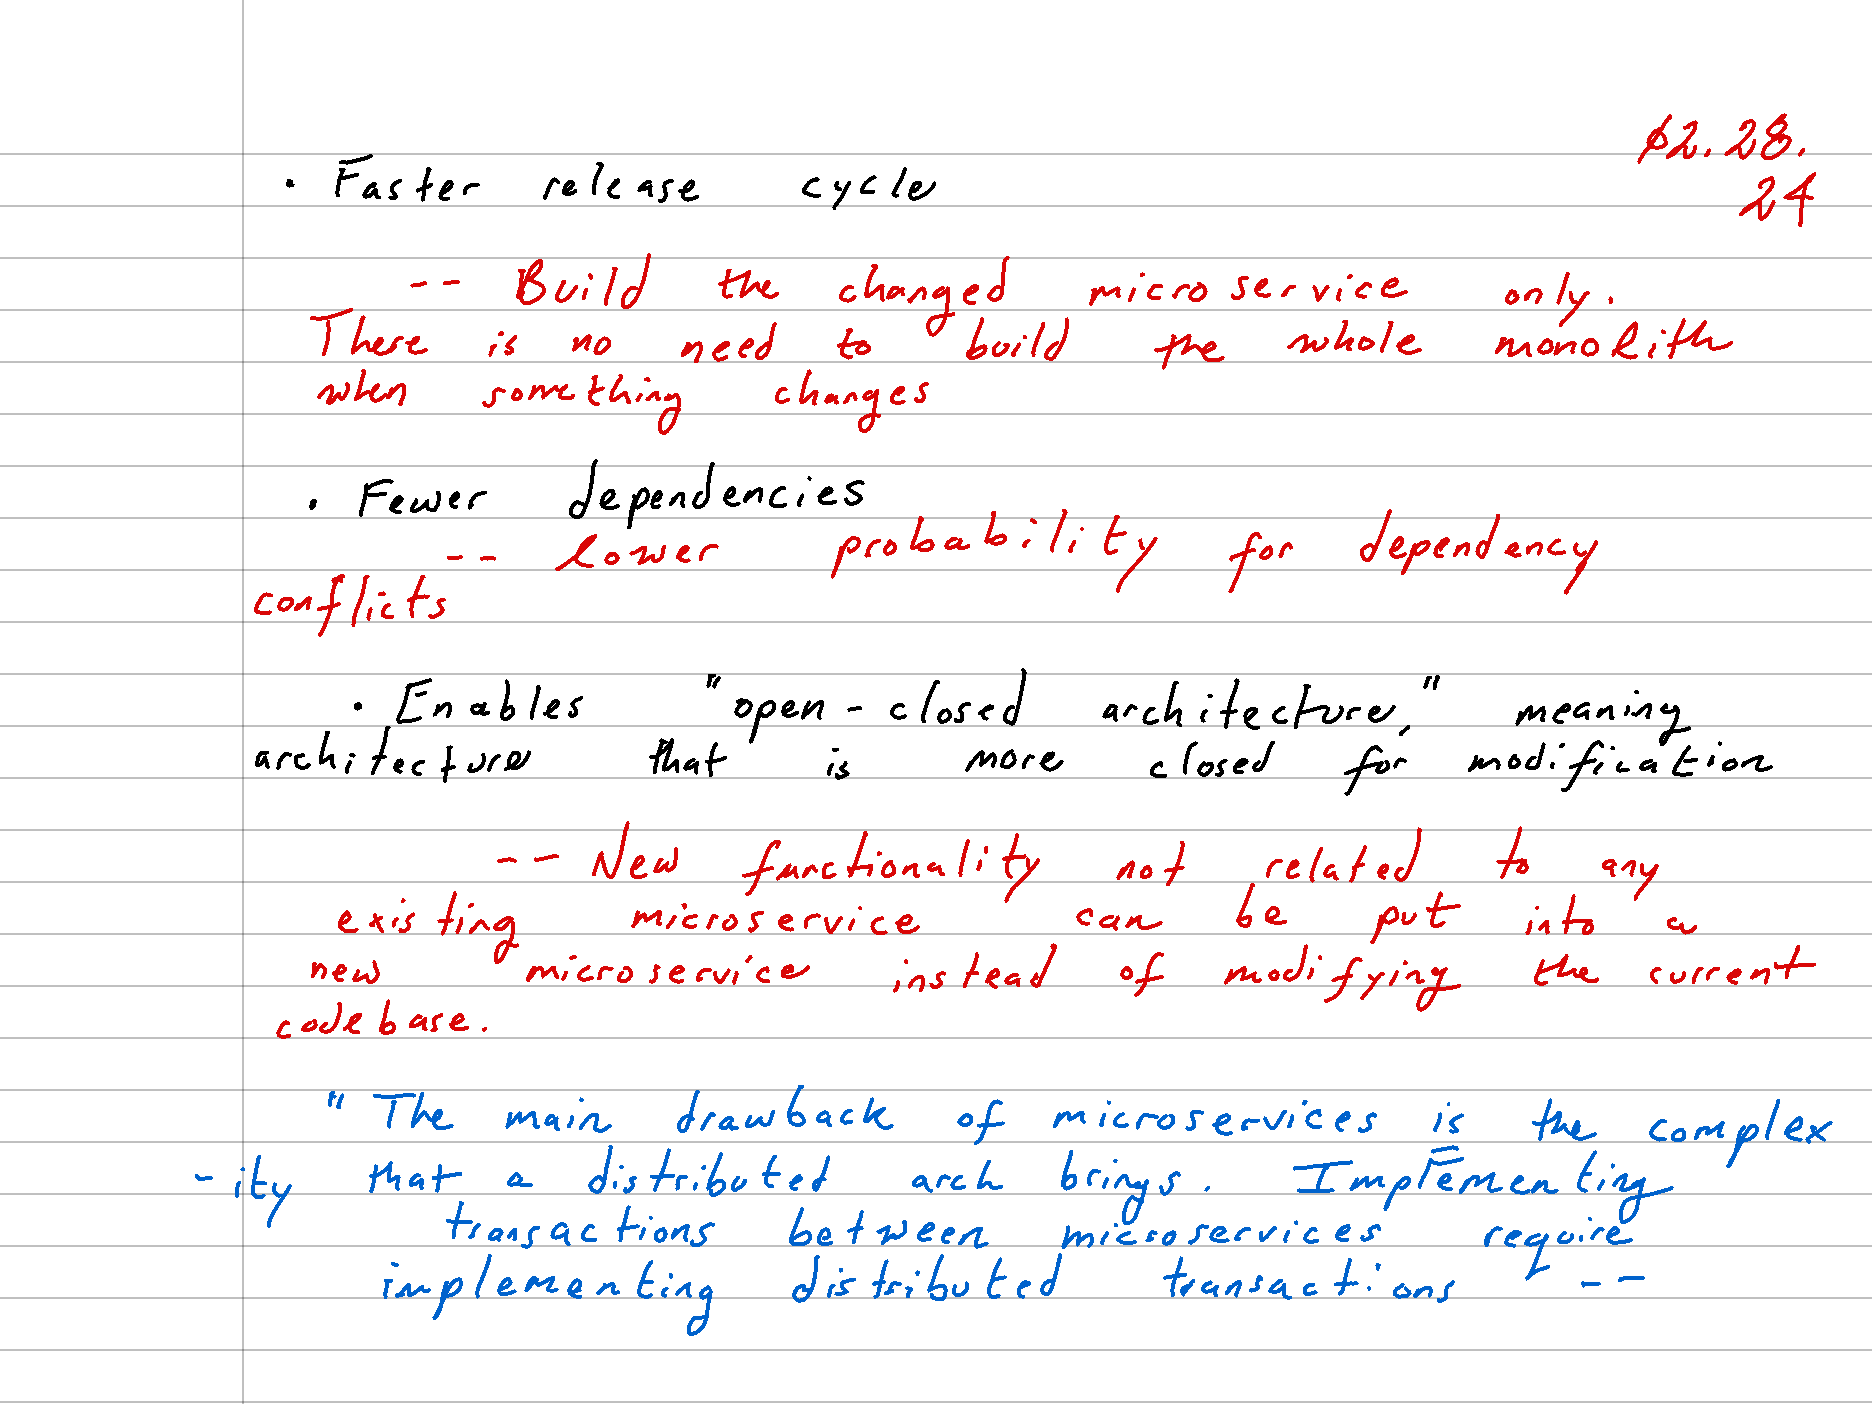 02.28.
24
• Faster release cycle
-- Build the changed microservice only.
There is no need to build the whole monolith
when something changes
• Fewer dependencies
-- lower probability for dependency
conflicts
• Enables "open-closed architecture," meaning
architecture that is more closed for modification
-- New functionality not related to any
existing microservice can be put into a
new microservice instead of modifying the current
codebase.
"The main drawback of microservices is the complex
-ity that a distributed arch brings. Implementing
transactions between microservices require
implementing distributed transactions --